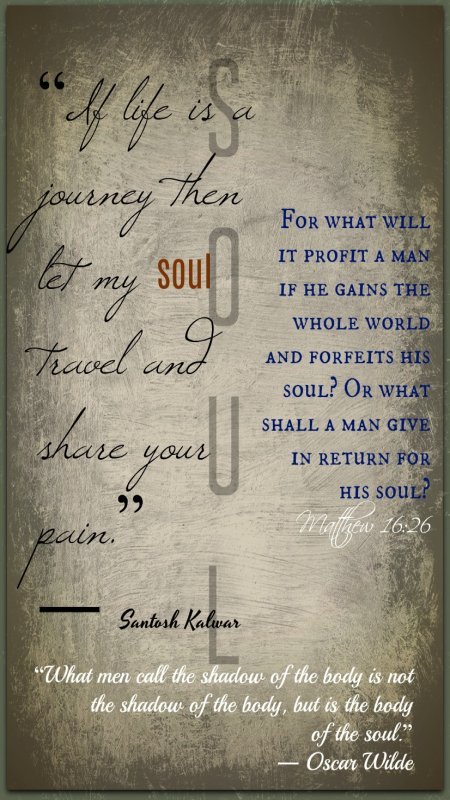 “If life is a
journey then
let my soul
travel and
share your
pain.”
Santosh Kalwar
SOUL
For what will
it profit a man
if he gains the
whole world
and forfeits his
soul? Or what
shall a man give
in return for
his soul?
Matthew 16:26
“What men call the shadow of the body is not
the shadow of the body, but is the body
of the soul.”
— Oscar Wilde